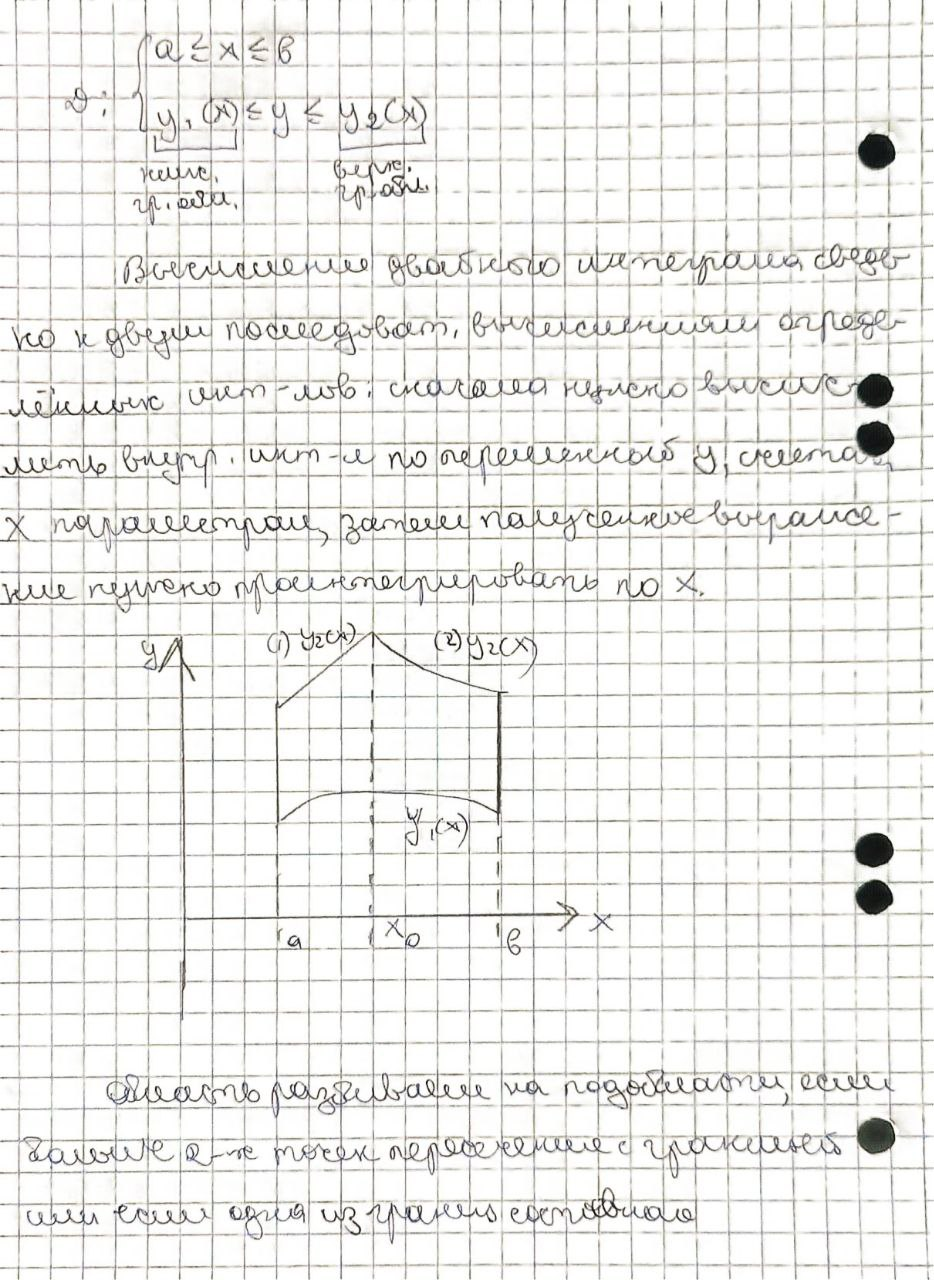 D: { a ≤ x ≤ b
y₁(x) ≤ y ≤ y₂(x)
нижн. верхн.
гр. обл. гр. обл.
Вычисление двойного интеграла сведе-
но к двум последоват. вычислениям опреде-
лённых инт-лов: сначала нужно вычис-
лить внутр. инт-л по переменной y, считая
x параметром, затем полученное выраже-
ние нужно проинтегрировать по x.
y (1) y₂(x) (2) y₂(x)
y₁(x)
a x₀ b x
Область разбиваем на подобласти, если
больше 2-х точек пересечения с границей
или если одна из границ составная